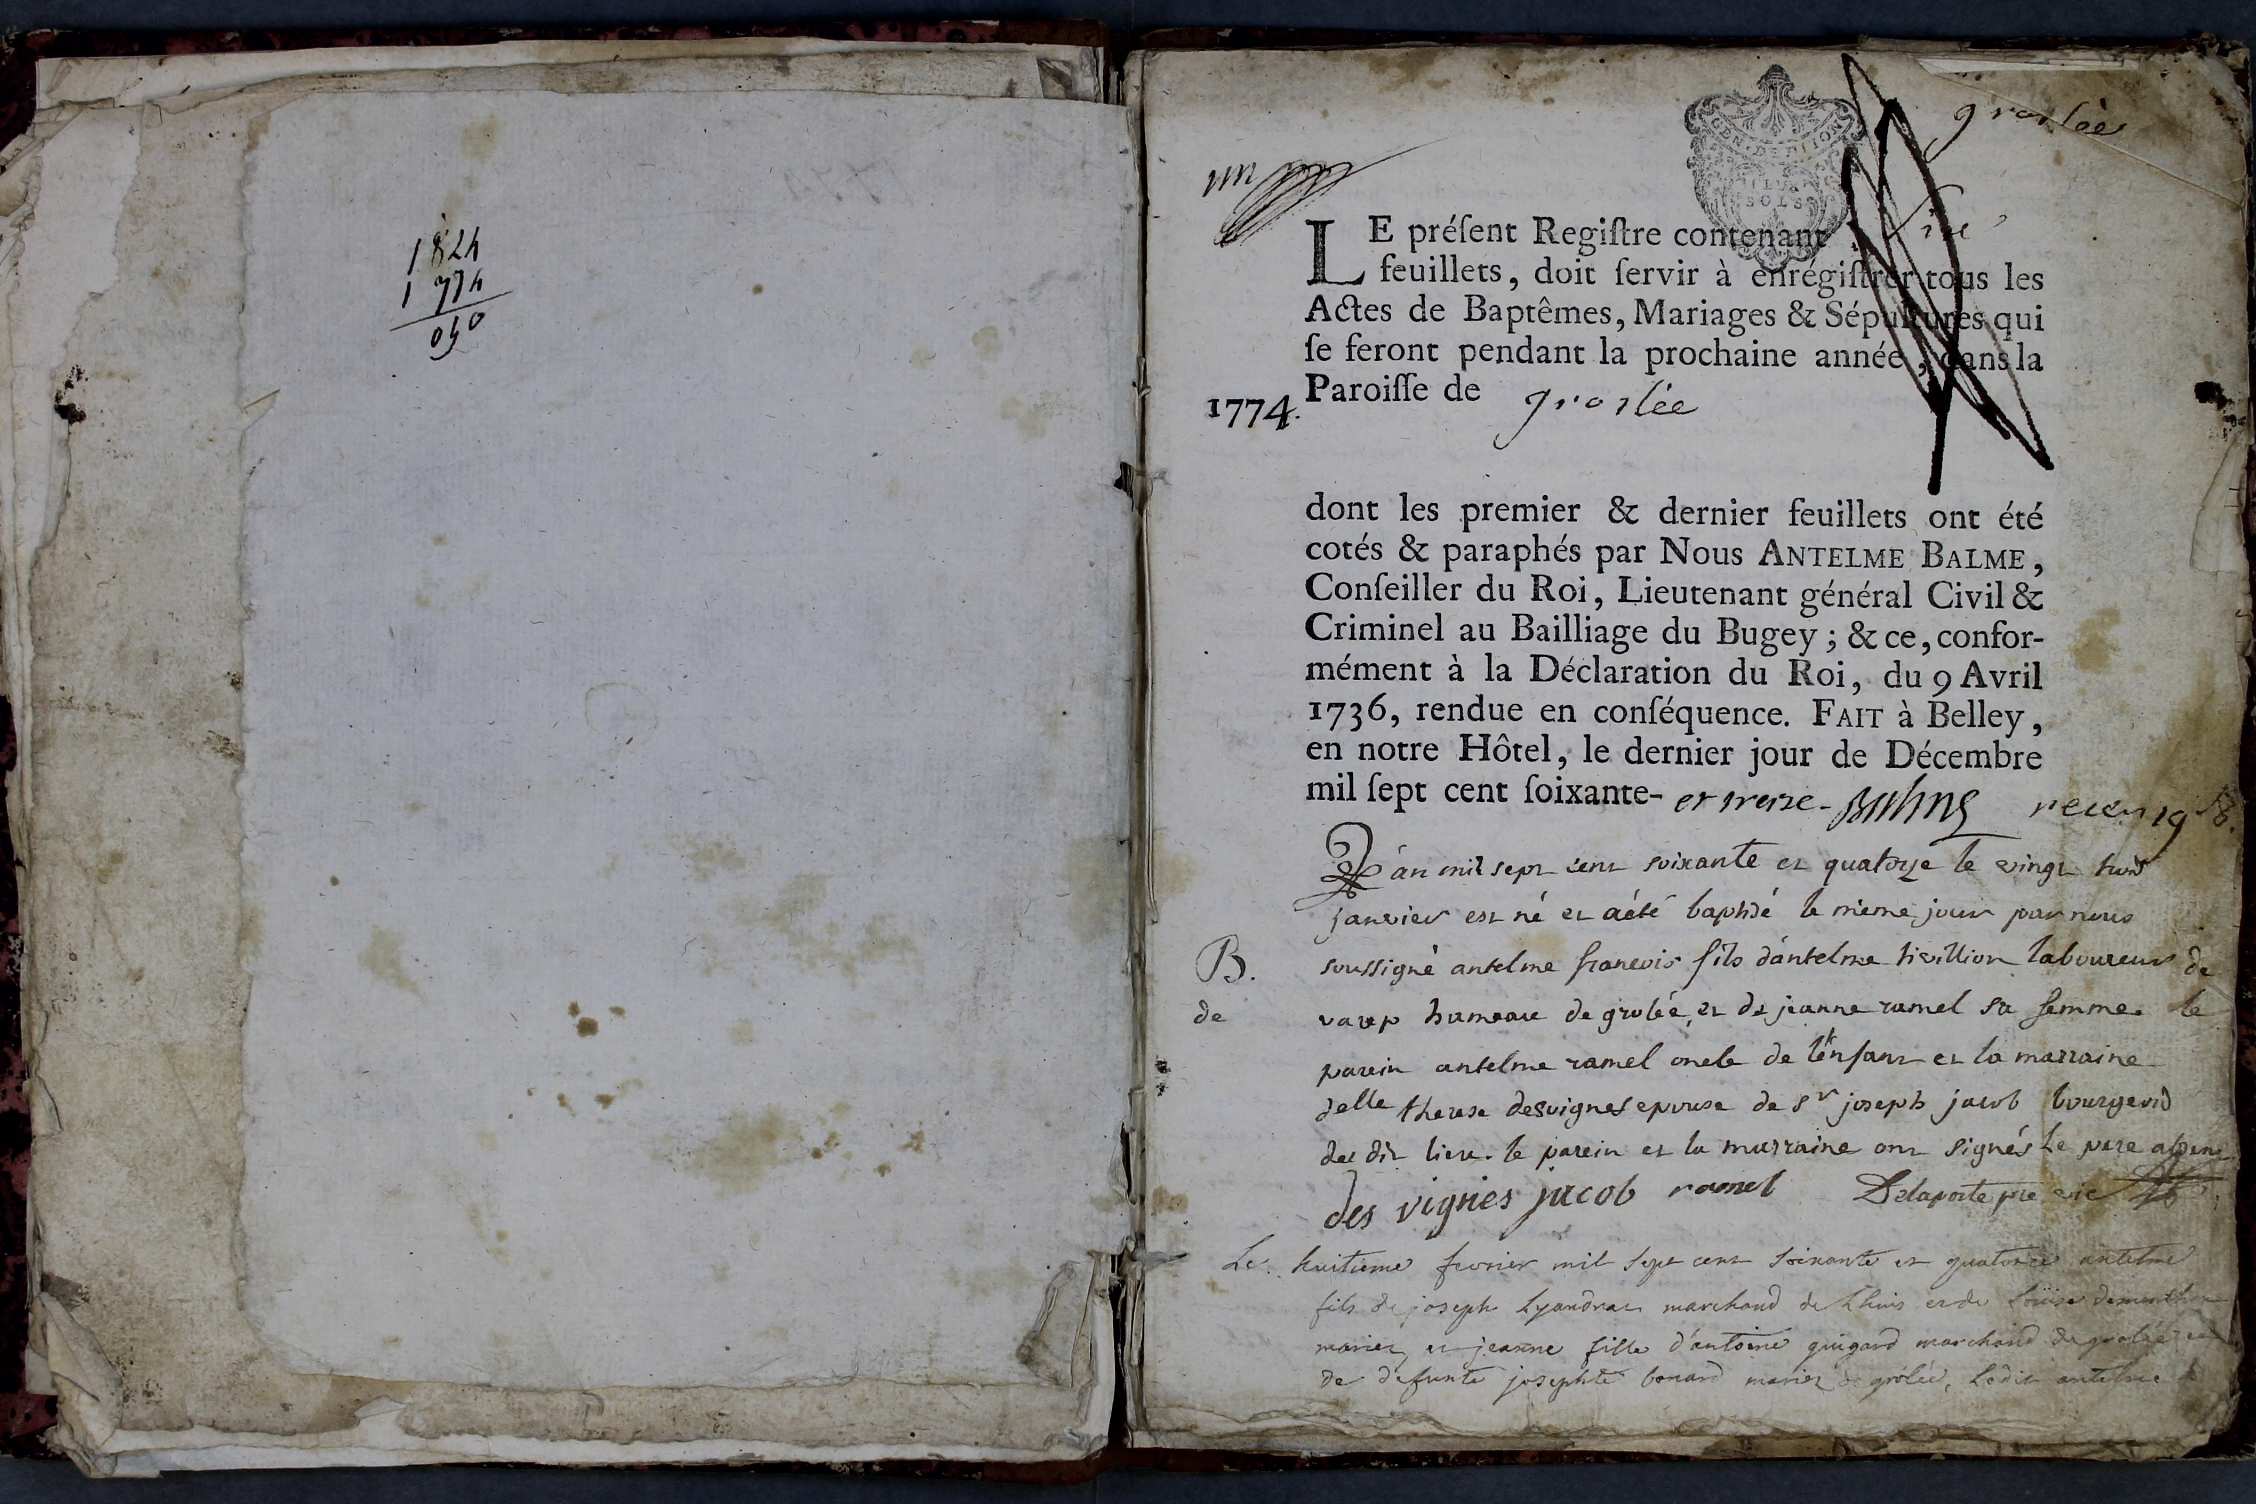 1824
1774
050
un
groslée
GEN. DE DIJON
SOLS
LE préſent Regiſtre contenant six
feuillets, doit ſervir à enrégiſtrer tous les
Actes de Baptêmes, Mariages & Sépultures qui
ſe feront pendant la prochaine année, dans la
1774. Paroiſſe de groslée
dont les premier & dernier feuillets ont été
cotés & paraphés par Nous ANTELME BALME,
Conſeiller du Roi, Lieutenant général Civil &
Criminel au Bailliage du Bugey; & ce, confor-
mément à la Déclaration du Roi, du 9 Avril
1736, rendue en conſéquence. FAIT à Belley,
en notre Hôtel, le dernier jour de Décembre
mil ſept cent ſoixante- et treize - Balme
L'an mil sept cent soixante et quatorze le vingt huit
janvier est né et a été baptisé le même jour par nous
B. soussigné antelme francois fils d'antelme laboureur de
de hameau de grolée, et de jeanne ramel sa femme. le
parein antelme ramel oncle de l'enfant et la marraine
delle therese desvignes epouse de Sr joseph jacob bourgeois
du dit lieu. le parein et la marraine ont signés Le pere
des vignes jacob ramel Delaporte pre vic
Le huitieme fevrier mil sept cent soixante et quatorze antelme
fils de joseph marchand de Lhuis et de Louise
mariez, et jeanne fille d'antoine guigard marchand de grolée et
de defunte josephte bonard mariez de grolée, Ledit antelme